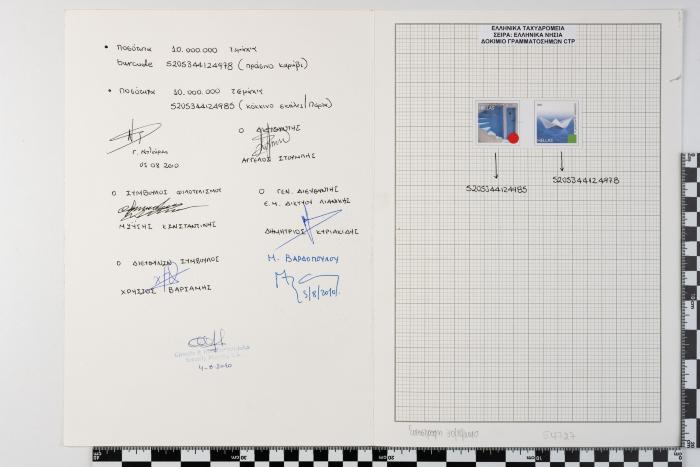 • Ποσότητα 10.000.000 τεμάχια
barcode 5205344124978 (πράσινο καράβι)
• Ποσότητα 10.000.000 τεμάχια
5205344124985 (κόκκινο σκάλες/Πάρος)
05.08.2010
Ο ΔΙΕΥΘΥΝΤΗΣ
ΑΓΓΕΛΟΣ ΣΤΟΥΜΠΗΣ
Ο ΣΥΜΒΟΥΛΟΣ ΦΙΛΟΤΕΛΙΣΜΟΥ
ΜΩΥΣΗΣ ΚΩΝΣΤΑΝΤΙΝΗΣ
Ο ΓΕΝ. ΔΙΕΥΘΥΝΤΗΣ
Ε.Μ. ΔΙΚΤΥΟΥ ΛΙΑΝΙΚΗΣ
ΔΗΜΗΤΡΙΟΣ ΚΥΡΙΑΚΙΔΗΣ
Ο ΔΙΕΥΘΥΝΩΝ ΣΥΜΒΟΥΛΟΣ
ΧΡΗΣΤΟΣ ΒΑΡΣΑΜΗΣ
Μ. ΒΑΡΔΟΠΟΥΛΟΥ
5/8/2010
4-8-2010
ΕΛΛΗΝΙΚΑ ΤΑΧΥΔΡΟΜΕΙΑ
ΣΕΙΡΑ: ΕΛΛΗΝΙΚΑ ΝΗΣΙΑ
ΔΟΚΙΜΙΟ ΓΡΑΜΜΑΤΟΣΗΜΩΝ CTP
HELLAS
5205344124985
5205344124978
54727